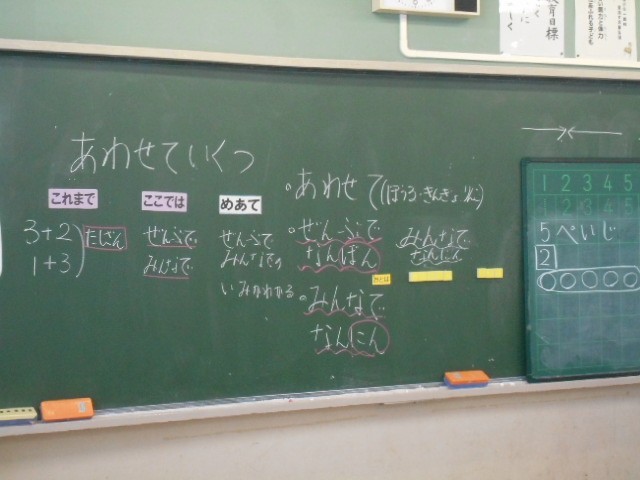 あわせていくつ
これまで
3+2
1+3
たしざん
ここでは
ぜんぶで
みんなで
めあて
ぜんぶで
みんなでの
いみがわかる
あわせて
ぜんぶで
なんばん
みんなで
なんにん
みんなで
なんにん
1 2 3 4 5
1 2 3 4 5
5ぺいじ
2
育目標